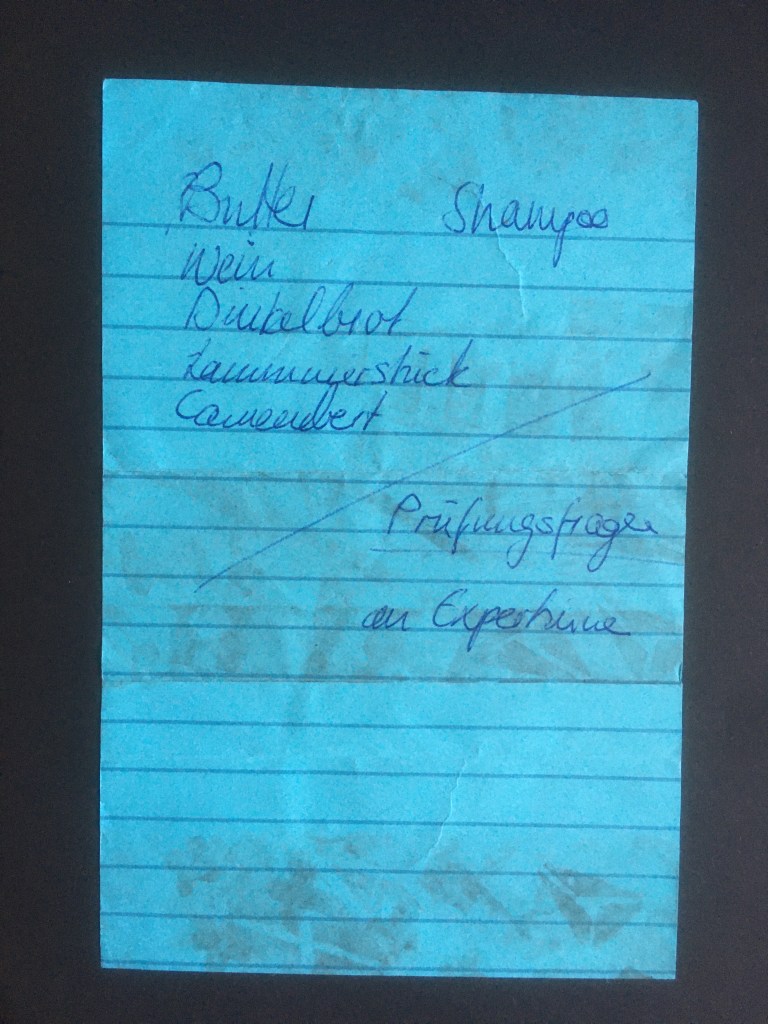 Butter Shampoo
Wein
Dinkelbrot
Lammnierstück
Camembert
Prüfungsfragen
an Expertinne